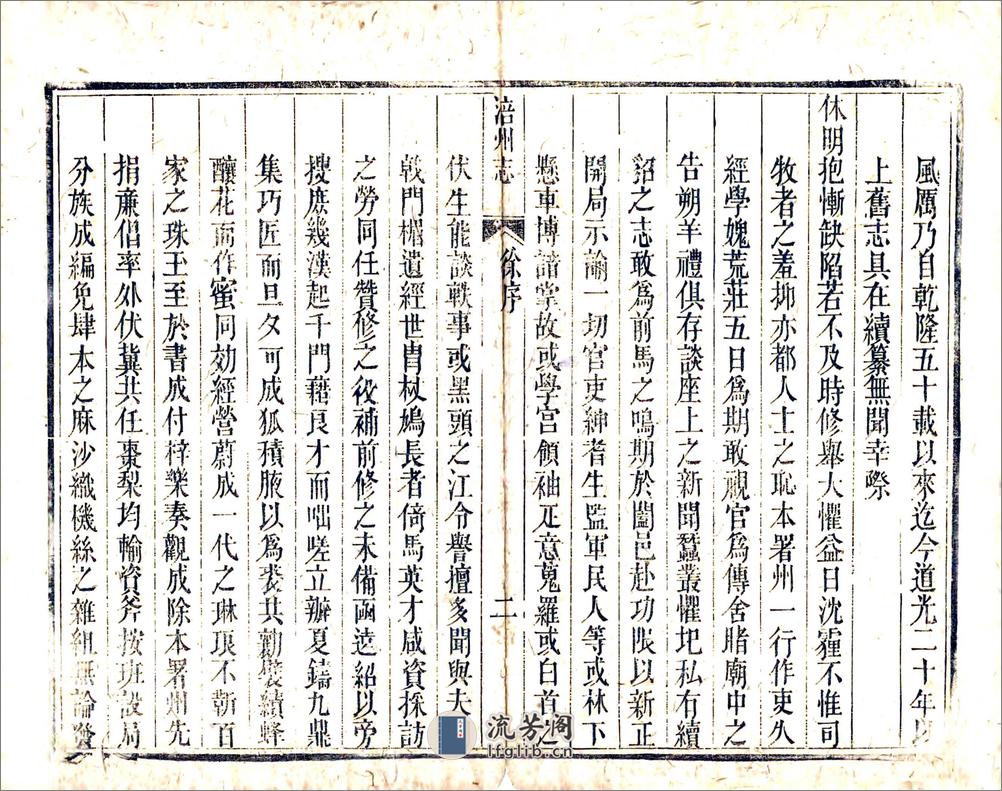 風厲乃自乾隆五十載以來迄今道光二十年以
上舊志具在續纂無聞幸際
休明抱慚缺陷若不及時修舉大懼益日沈霾不惟司
牧者之羞抑亦都人士之恥本署州一行作吏久
經學媿荒莊五日為期敢視官為傳舍賭廟中之
告朔羊禮俱存談座上之新聞蠶叢懼圯私有續
貂之志敢為前馬之鳴期於闔邑赴功限以新正
開局示諭一切官吏紳耆生監軍民人等或林下
懸車博諳掌故或學宮領袖疋意蒐羅或白首之
涪州志
徐序
二
伏生能談軼事或黑頭之江令譽擅多聞與夫
戟門楣遺經世冑杖鳩長者倚馬英才咸資採訪
之勞同任贊修之役補前修之未備函逵紹以旁
搜庶幾漢起千門藉良才而咄嗟立辦夏鑄九鼎
集巧匠而旦夕可成狐積腋以為裘共勷襞績蜂
釀花而作蜜同効經營蔚成一代之琳琅不斬百
家之珠玉至於書成付梓樂奏觀成除本署州先
捐廉倡率外伏冀共任棗梨均輸資斧按班設局
分族成編免肆本之麻沙織機絲之雜組無論發
流芳閣
lfglib.cn